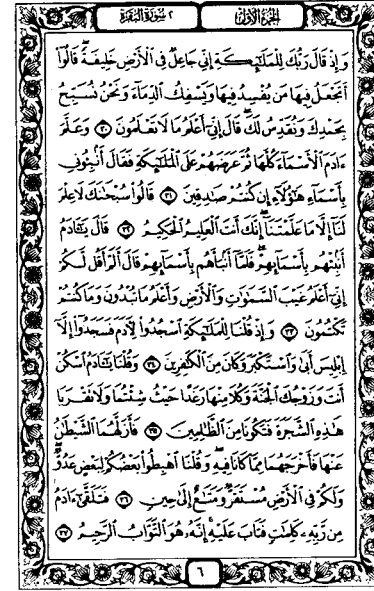 الجزء الأول
٢ سورة البقرة
وَإِذْ قَالَ رَبُّكَ لِلْمَلَـٰٓئِكَةِ إِنِّي جَاعِلٌ فِي الْأَرْضِ خَلِيفَةً ۖ قَالُوٓا۟
أَتَجْعَلُ فِيهَا مَن يُفْسِدُ فِيهَا وَيَسْفِكُ الدِّمَآءَ وَنَحْنُ نُسَبِّحُ
بِحَمْدِكَ وَنُقَدِّسُ لَكَ ۖ قَالَ إِنِّيٓ أَعْلَمُ مَا لَا تَعْلَمُونَ ٣٠ وَعَلَّمَ
ءَادَمَ الْأَسْمَآءَ كُلَّهَا ثُمَّ عَرَضَهُمْ عَلَى الْمَلَـٰٓئِكَةِ فَقَالَ أَنۢبِـُٔونِي
بِأَسْمَآءِ هَـٰٓؤُلَآءِ إِن كُنتُمْ صَـٰدِقِينَ ٣١ قَالُوا۟ سُبْحَـٰنَكَ لَا عِلْمَ
لَنَآ إِلَّا مَا عَلَّمْتَنَآ ۖ إِنَّكَ أَنتَ الْعَلِيمُ الْحَكِيمُ ٣٢ قَالَ يَـٰٓـَٔادَمُ
أَنۢبِئْهُم بِأَسْمَآئِهِمْ ۖ فَلَمَّآ أَنۢبَأَهُم بِأَسْمَآئِهِمْ قَالَ أَلَمْ أَقُل لَّكُمْ
إِنِّيٓ أَعْلَمُ غَيْبَ السَّمَـٰوَٰتِ وَالْأَرْضِ وَأَعْلَمُ مَا تُبْدُونَ وَمَا كُنتُمْ
تَكْتُمُونَ ٣٣ وَإِذْ قُلْنَا لِلْمَلَـٰٓئِكَةِ اسْجُدُوا۟ لِـَٔادَمَ فَسَجَدُوٓا۟ إِلَّآ
إِبْلِيسَ أَبَىٰ وَاسْتَكْبَرَ وَكَانَ مِنَ الْكَـٰفِرِينَ ٣٤ وَقُلْنَا يَـٰٓـَٔادَمُ اسْكُنْ
أَنتَ وَزَوْجُكَ الْجَنَّةَ وَكُلَا مِنْهَا رَغَدًا حَيْثُ شِئْتُمَا وَلَا تَقْرَبَا
هَـٰذِهِ الشَّجَرَةَ فَتَكُونَا مِنَ الظَّـٰلِمِينَ ٣٥ فَأَزَلَّهُمَا الشَّيْطَـٰنُ
عَنْهَا فَأَخْرَجَهُمَا مِمَّا كَانَا فِيهِ ۖ وَقُلْنَا اهْبِطُوا۟ بَعْضُكُمْ لِبَعْضٍ عَدُوٌّ ۖ
وَلَكُمْ فِي الْأَرْضِ مُسْتَقَرٌّ وَمَتَـٰعٌ إِلَىٰ حِينٍ ٣٦ فَتَلَقَّىٰٓ ءَادَمُ
مِن رَّبِّهِۦ كَلِمَـٰتٍ فَتَابَ عَلَيْهِ ۚ إِنَّهُۥ هُوَ التَّوَّابُ الرَّحِيمُ ٣٧
٦